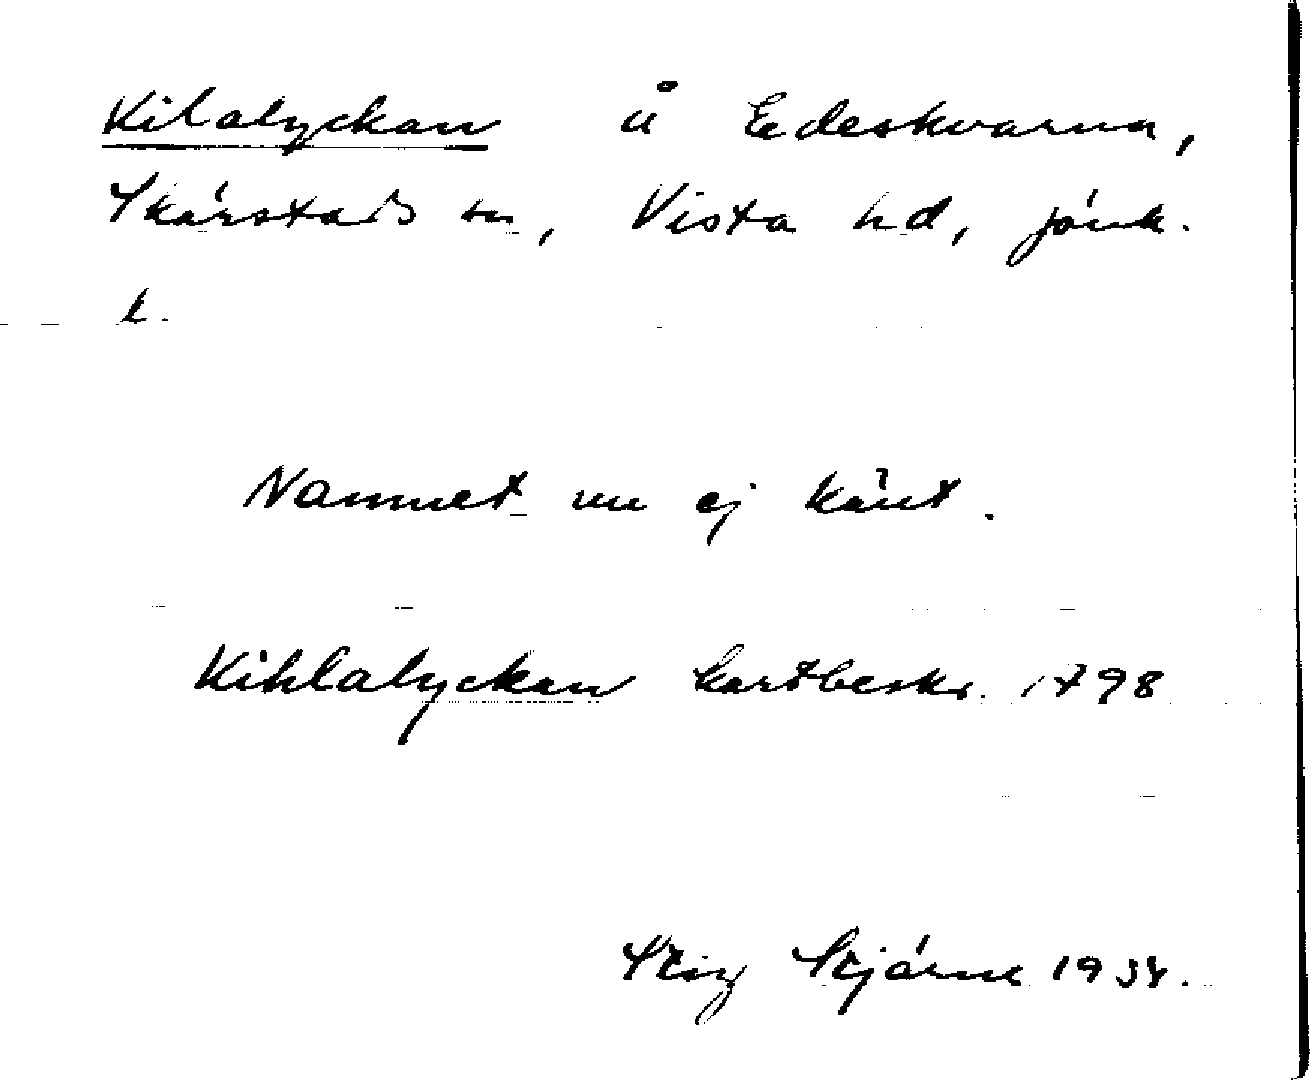 Kilalyckan å Edeskvarna,
Skärstads sn, Vista hd, Jönk.
l.
Namnet nu ej känt.
Kihlalyckan kartbeskr. 1798
Stig Stjärne